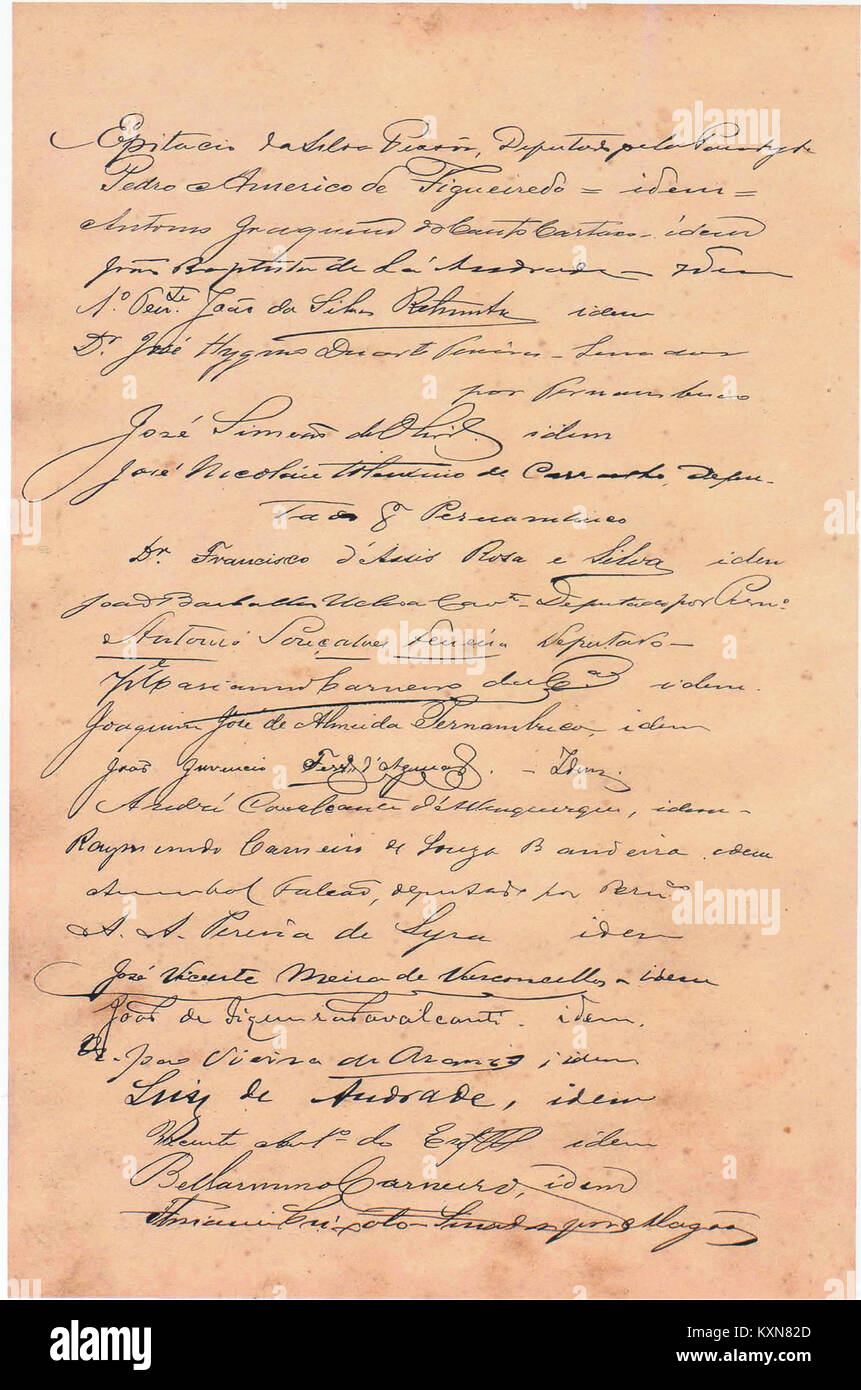 Epitacio da Silva Pessôa, Deputado pela Parahyba
Pedro Americo de Figueiredo = idem =
Antonio Joaquim do Couto Cartaxo - idem
João Baptista de Sá Andrade - Idem
1º Ten.te João da Silva Retumba idem
Dr. José Hygino Duarte Pereira - Senador
por Pernambuco
José Simeão de Oliv.ª idem
José Nicoláu Tolentino de Carvalho, Depu-
tado pr Pernambuco
Dr. Francisco d'Assis Rosa e Silva idem
João Barbalho Uchoa Cav.te - Deputado por Pern.o
Antonio Gonçalves Ferreira Deputado -
José Marianno Carneiro da Cª idem.
Joaquim José de Almeida Pernambuco, idem
João Juvencio Ferr.a d'Aguiar. - Idem.
André Cavalcanti d'Albuquerque, idem -
Raymundo Carneiro de Souza Bandeira. idem
Annibal Falcão, deputado por Pern.co
A. A. Pereira de Lyra idem
José Vicente Meira de Vasconcellos - idem
João de Siqueira Cavalcanti. idem.
Dr. João Vieira de Araujo, idem
Luiz de Andrade, idem
Vicente Ant.o do Esp.to S.to idem
Bellarmino Carneiro, idem
Floriano Peixoto - Senador por Alagôas
alamy
alamy
alamy
alamy
Image ID: KXN82D
www.alamy.com